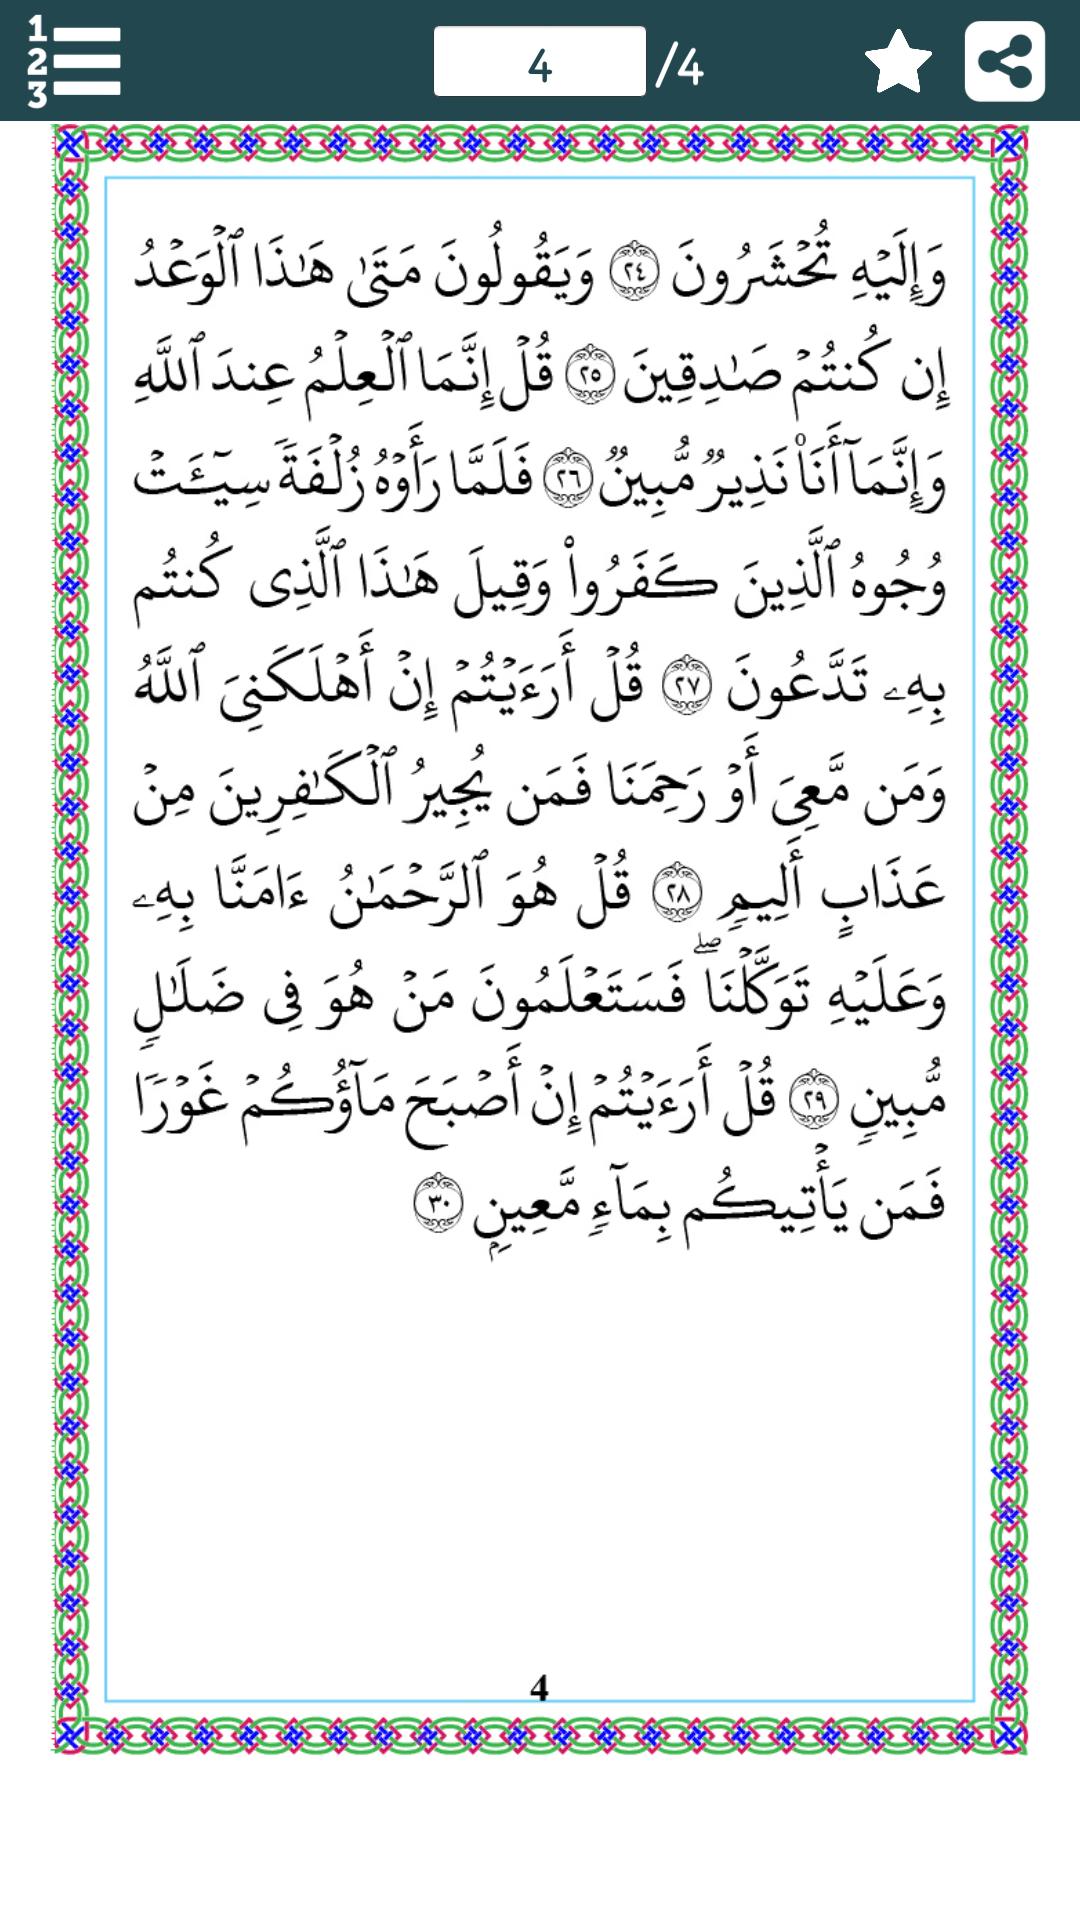 1
2
3
4 /4
وَإِلَيْهِ تُحْشَرُونَ ٢٤ وَيَقُولُونَ مَتَىٰ هَٰذَا ٱلْوَعْدُ
إِن كُنتُمْ صَٰدِقِينَ ٢٥ قُلْ إِنَّمَا ٱلْعِلْمُ عِندَ ٱللَّهِ
وَإِنَّمَآ أَنَا۠ نَذِيرٌ مُّبِينٌ ٢٦ فَلَمَّا رَأَوْهُ زُلْفَةً سِيٓـَٔتْ
وُجُوهُ ٱلَّذِينَ كَفَرُوا۟ وَقِيلَ هَٰذَا ٱلَّذِى كُنتُم
بِهِۦ تَدَّعُونَ ٢٧ قُلْ أَرَءَيْتُمْ إِنْ أَهْلَكَنِىَ ٱللَّهُ
وَمَن مَّعِىَ أَوْ رَحِمَنَا فَمَن يُجِيرُ ٱلْكَٰفِرِينَ مِنْ
عَذَابٍ أَلِيمٍ ٢٨ قُلْ هُوَ ٱلرَّحْمَٰنُ ءَامَنَّا بِهِۦ
وَعَلَيْهِ تَوَكَّلْنَا ۖ فَسَتَعْلَمُونَ مَنْ هُوَ فِى ضَلَٰلٍ
مُّبِينٍ ٢٩ قُلْ أَرَءَيْتُمْ إِنْ أَصْبَحَ مَآؤُكُمْ غَوْرًا
فَمَن يَأْتِيكُم بِمَآءٍ مَّعِينٍۭ ٣٠
4